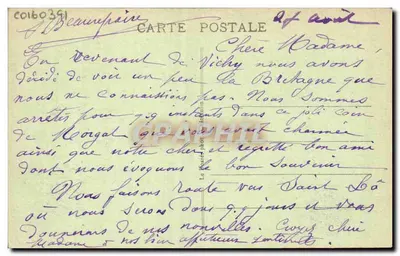 C0160391
Beaurepaire
CARTE POSTALE
28 août
Chère Madame,
En revenant de Vichy nous avons
décidé de voir un peu la Bretagne que
nous ne connaissions pas. Nous sommes
arrêtés pour q.q instants dans ce joli coin
de Morgat qui vous avait charmée
ainsi que notre cher et regretté bon ami
dont nous évoquons le bon souvenir
Nous faisons route vers Saint Lô
où nous serons dans q.q jours et vous
donnerons de nos nouvelles. Croyez chère
Madame à nos bien affectueux sentiments